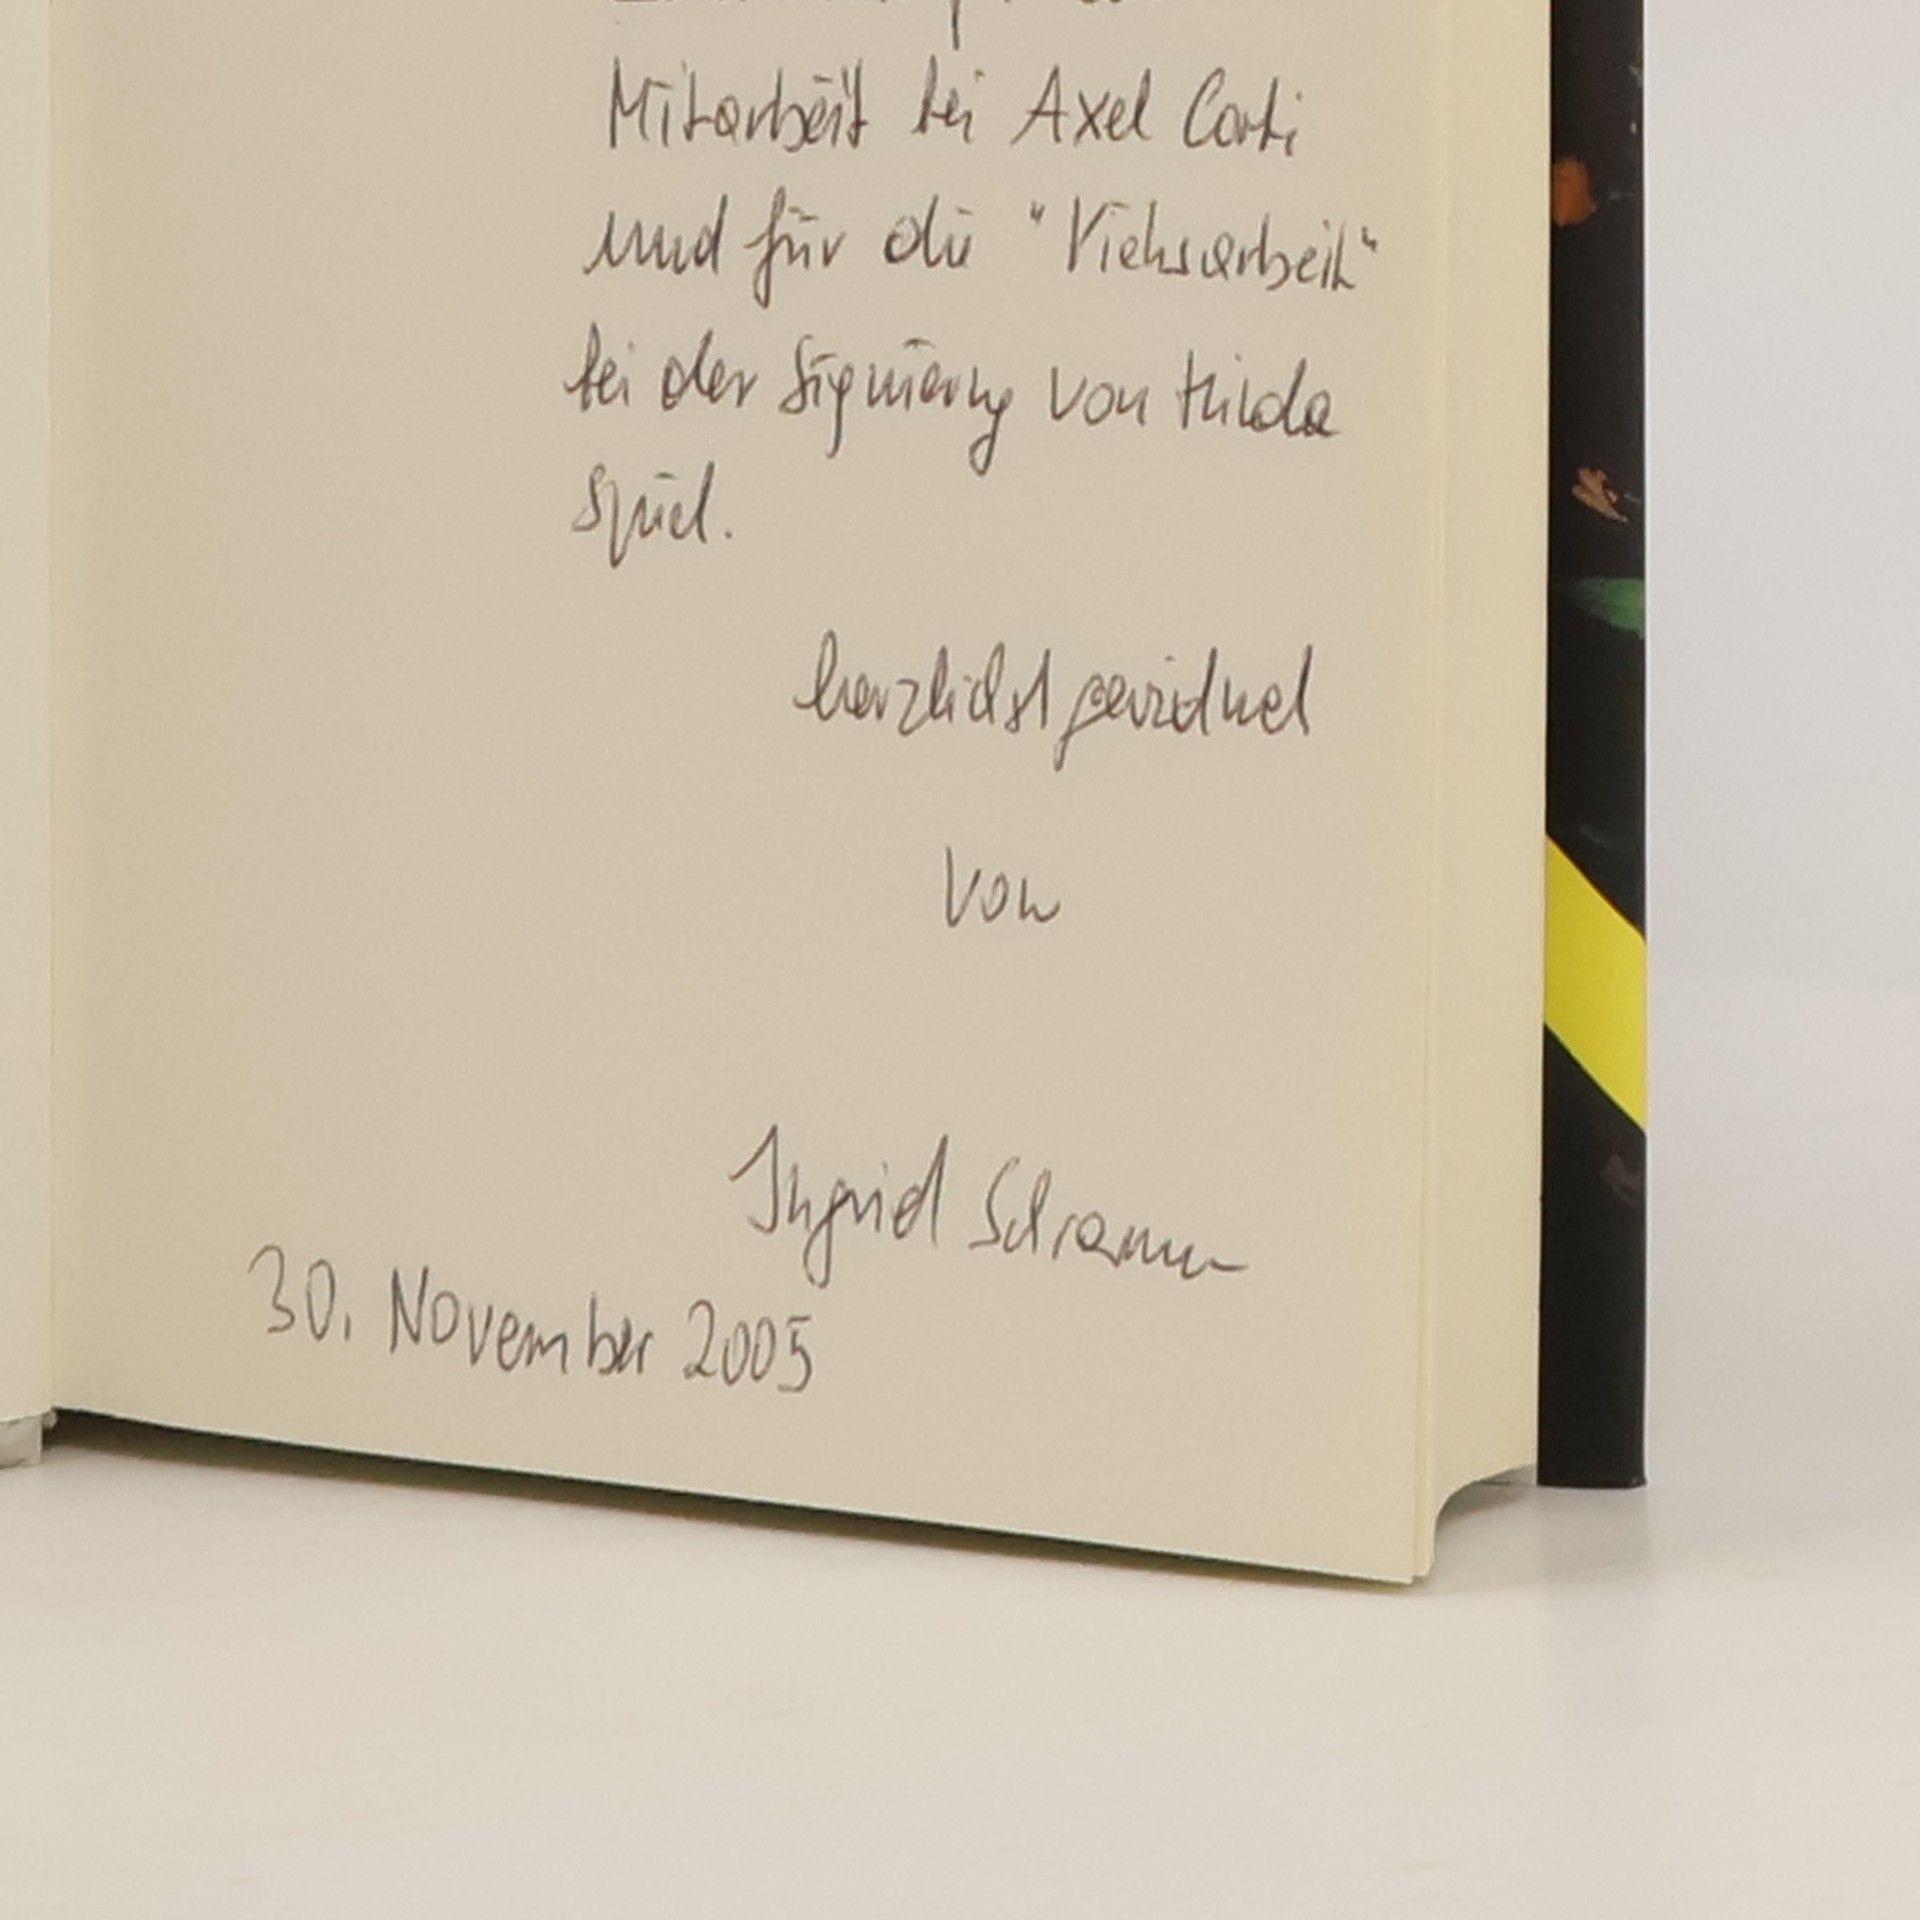 Mitarbeit bei Axel Corti
und für die "Viehsarbeit"
bei der Signierung von Hilda
Spiel.
herzlichst gewidmet
von
Ingrid Schramm
30. November 2005